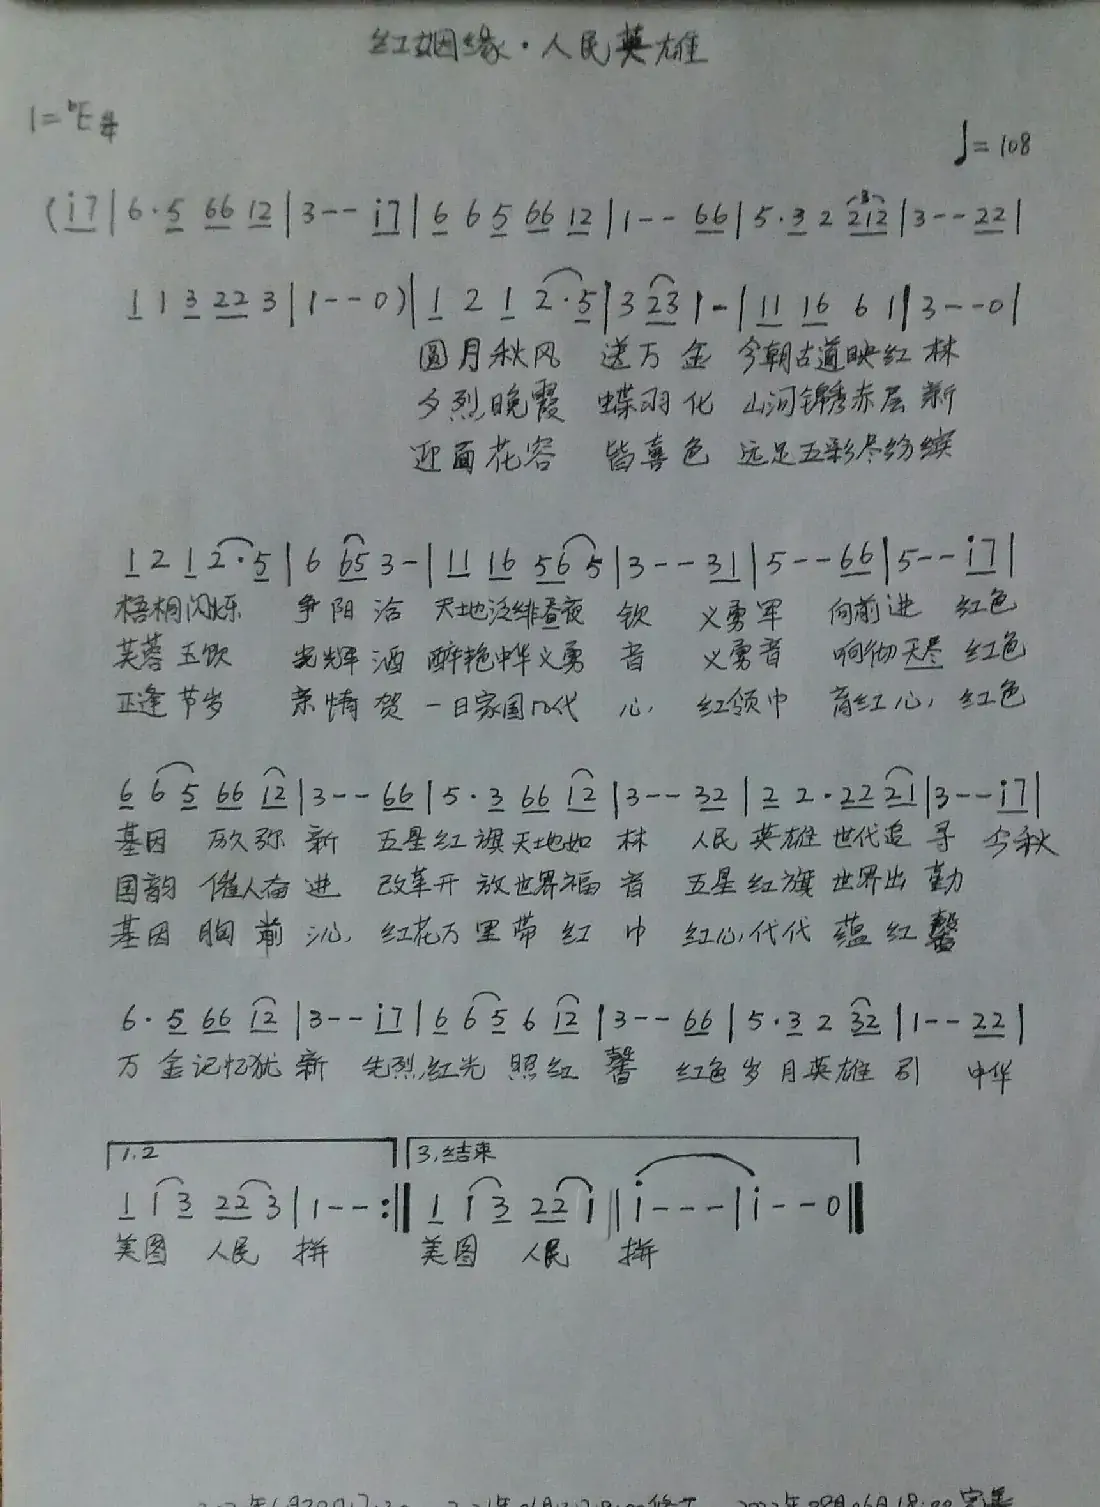 红姻缘·人民英雄
1=♭E 4/4
♩=108
(i7|6·5 66 12|3-- i7|6 6 5 66 12|1-- 66|5·3 2 212|3--22|
1 1 3 22 3|1--0)|1 2 1 2·5|3 23 1-|11 16 6 1|3--0|
圆月秋风 送万金 今朝古道映红林
夕烈晚霞 蝶羽化 山河锦秀赤层新
迎面花容 皆喜色 远足五彩尽纷缤
1 2 1 2·5|6 65 3-|11 16 56 5|3--31|5--66|5--i7|
梧桐闪烁 争阳洽 天地泛绯昼夜 钦 义勇军 向前进 红色
芙蓉玉饮 光辉酒 醉艳中华义勇 音 义勇音 响彻天尽 红色
正逢节岁 亲情贺 一日家国几代 心, 红领巾 育红心, 红色
6 6 5 66 12|3--66|5·3 66 12|3--32|2 2·22 21|3--i7|
基因 弥新 五星红旗天地如 林 人民英雄世代追 寻 今秋
国韵 催人奋 进 改革开放世界福 音 五星红旗世界出 勤
基因 胸前 沁, 红花万里带红 巾 红心,代代蕴红 馨
6·5 66 12|3--i7|6 6 5 6 12|3--66|5·3 2 32|1--22|
万金记忆犹 新 先烈,红光 照红 馨 红色岁月英雄 引 中华
1.2 3.结束
1 1 3 22 3|1--:‖1 1 3 22 1‖i---|i--0‖
美图 人民 拼 美图 人民 拼